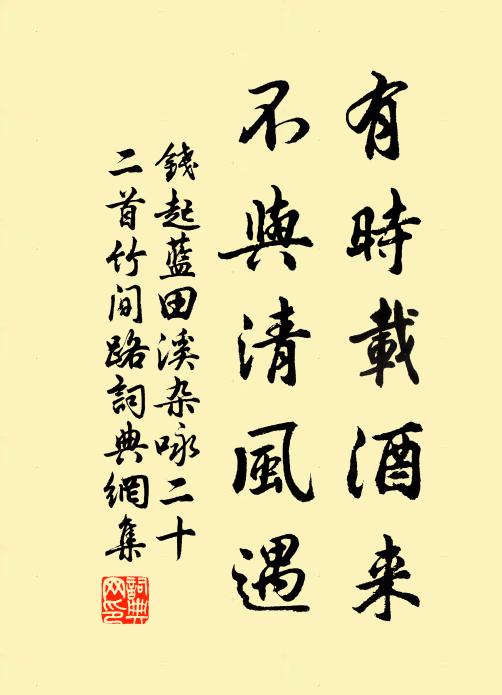 有時載酒来
不與清風遇
錢起藍田溪杂咏二十
二首竹间路詞典網集
詞典
网印